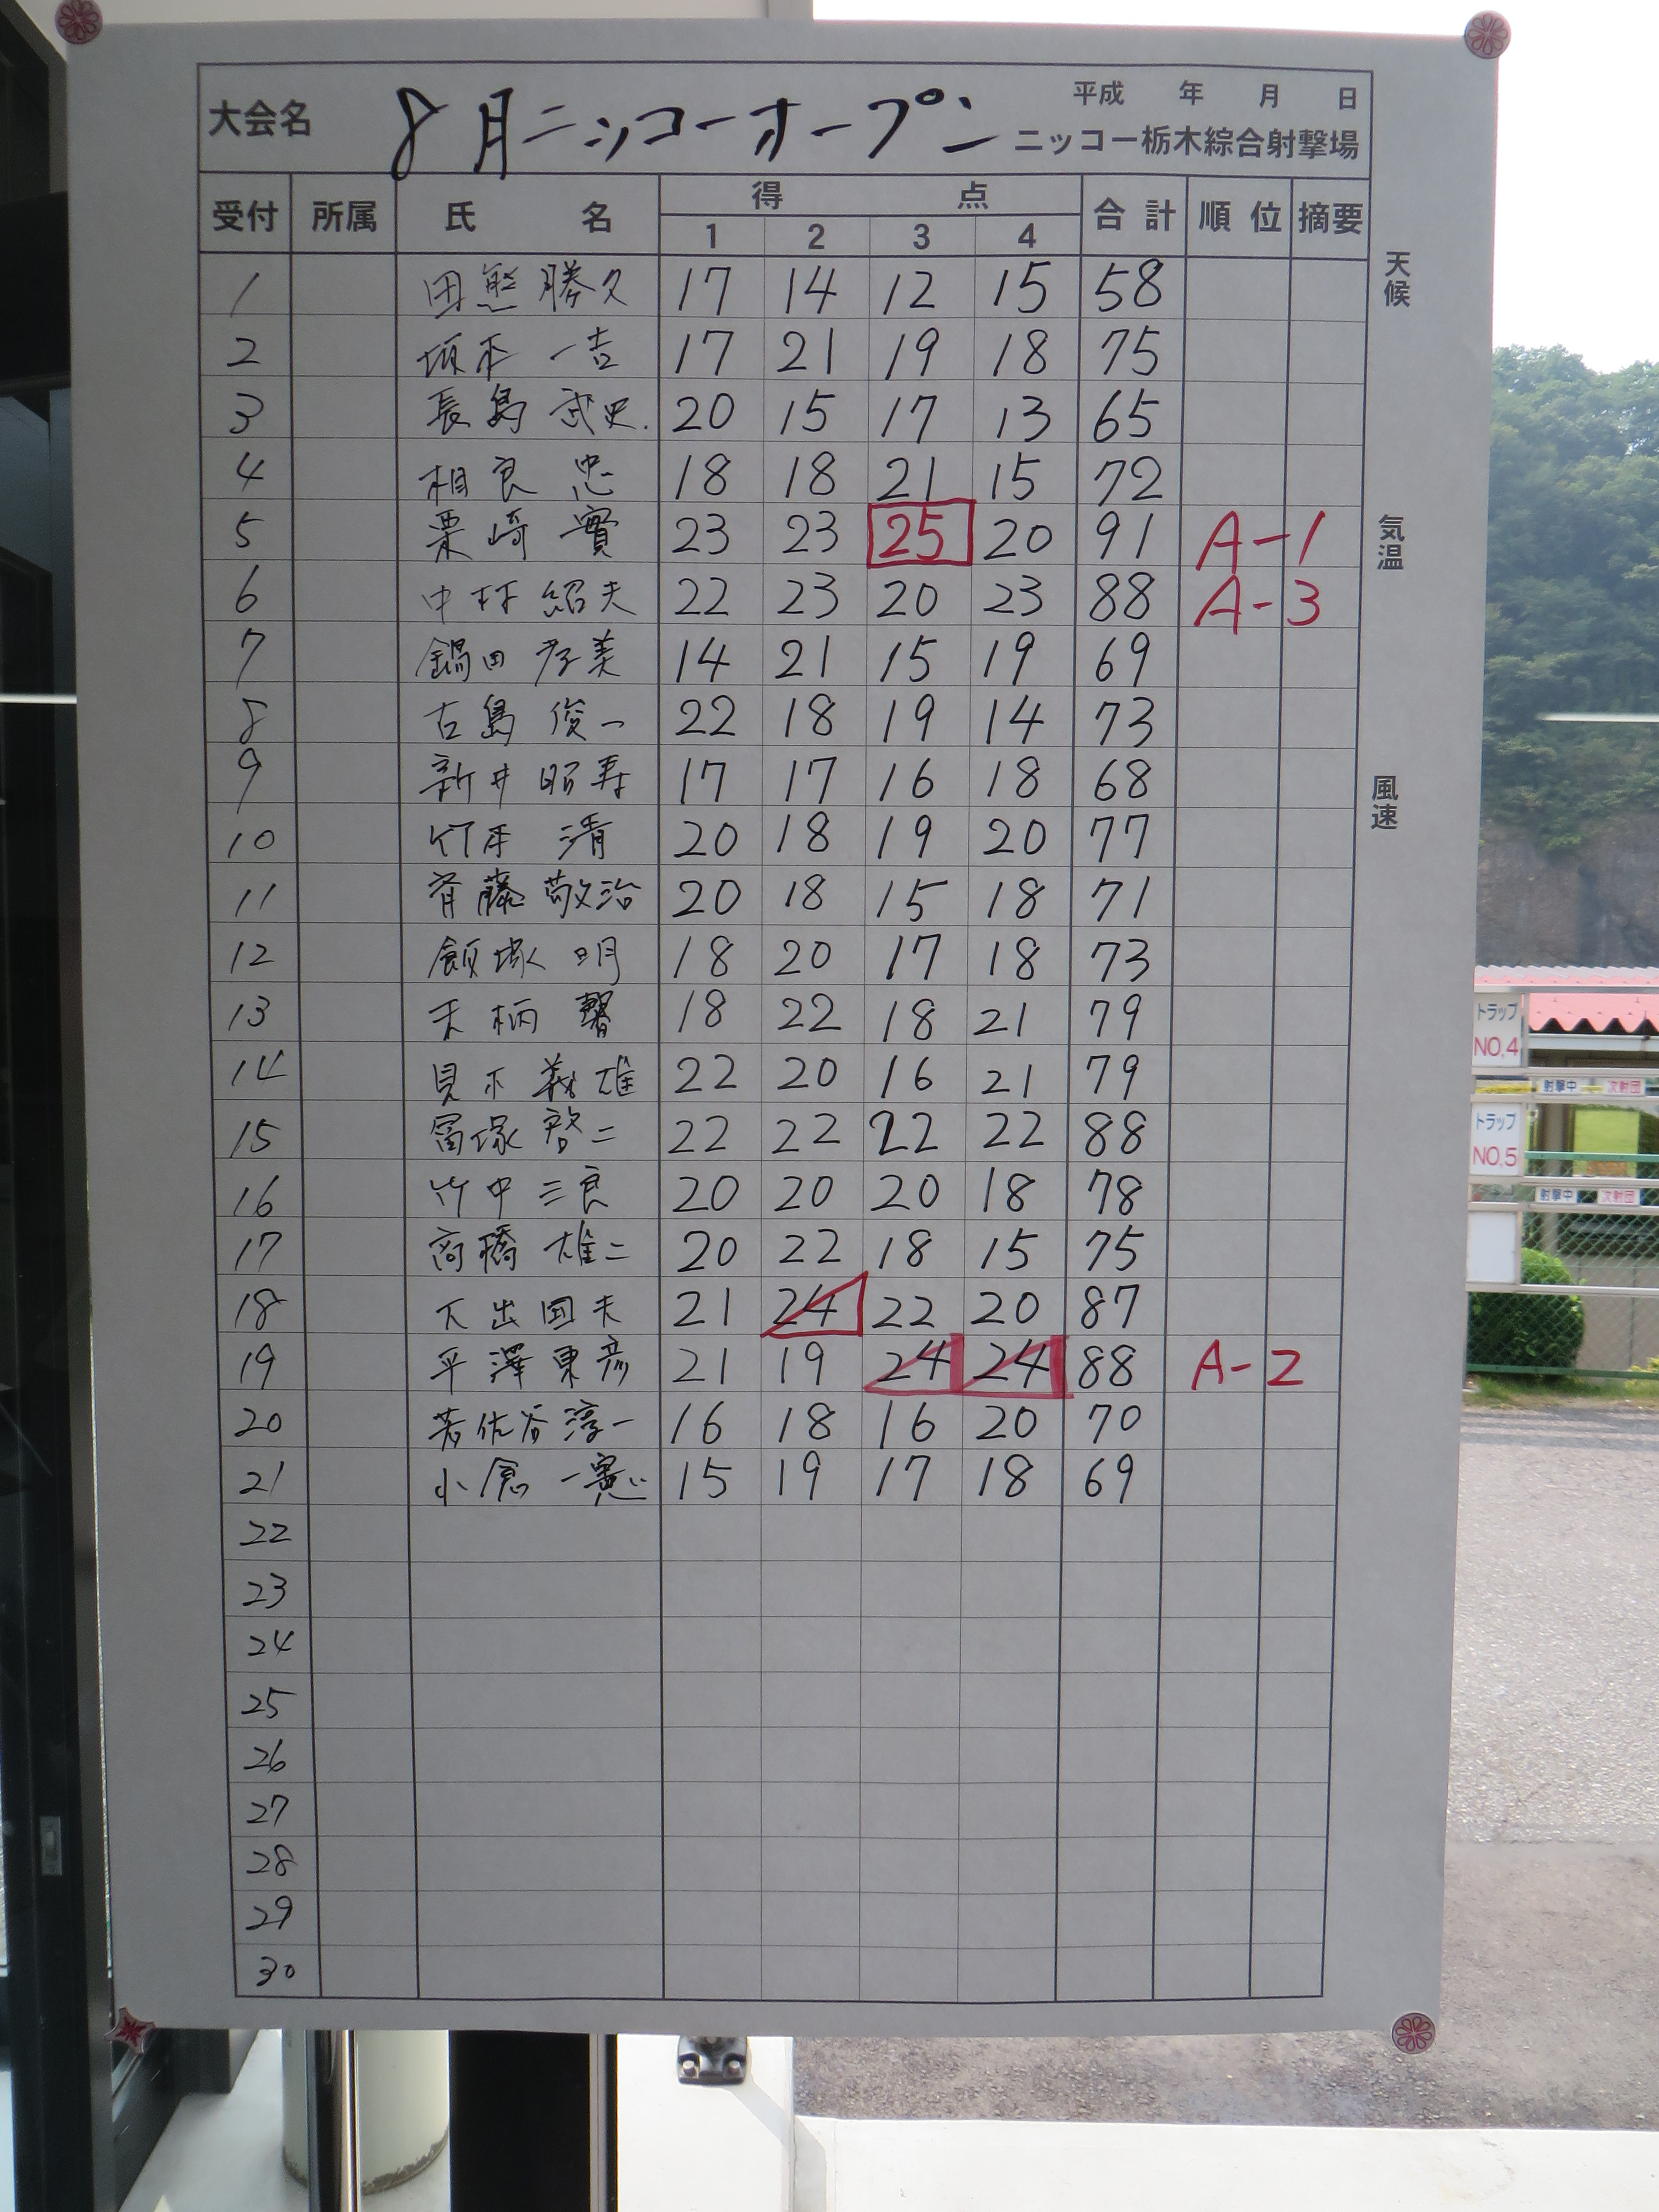 大会名 8月ニッコーオープン 平成 年 月 日
ニッコー栃木綜合射撃場
受付 所属 氏 名 得 点 合計 順位 摘要
1 2 3 4
1 田熊 勝久 17 14 12 15 58
2 坂本 一吉 17 21 19 18 75
3 長島 武史 20 15 17 13 65
4 相良 忠 18 18 21 15 72
5 栗崎 實 23 23 25 20 91 A-1
6 中村 紹夫 22 23 20 23 88 A-3
7 鍋田 孝美 14 21 15 19 69
8 古島 俊一 22 18 19 14 73
9 新井 昭寿 17 17 16 18 68
10 竹本 清 20 18 19 20 77
11 斉藤 敬治 20 18 15 18 71
12 飯塚 明 18 20 17 18 73
13 18 22 18 21 79
14 義雄 22 20 16 21 79
15 冨塚 啓二 22 22 22 22 88
16 竹中 三良 20 20 20 18 78
17 高橋 雄二 20 22 18 15 75
18 大出 国夫 21 24 22 20 87
19 平澤 東彦 21 19 24 24 88 A-2
20 若佐谷 淳一 16 18 16 20 70
21 小倉 一憲 15 19 17 18 69
22
23
24
25
26
27
28
29
30
天候
気温
風速
トラップ
NO.4
射撃中 次射団
トラップ
NO.5
射撃中 次射団